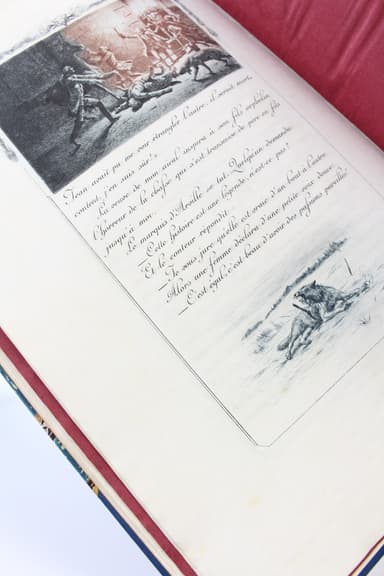 Jean avait pu me voir étrangler l'autre, il serait mort
content, j'en suis sûr!»
La veuve de mon aïeul inspira à son fils orphelin
l'horreur de la chasse qui s'est transmise de père en fils
jusqu'à moi.»
Le marquis d'Arville se tut. Quelqu'un demanda:
—Cette histoire est une légende, n'est-ce pas?
Et le conteur répondit:
—Je vous jure qu'elle est vraie d'un bout à l'autre.
Alors une femme déclara d'une petite voix douce:
—C'est égal, c'est beau d'avoir des passions pareilles.